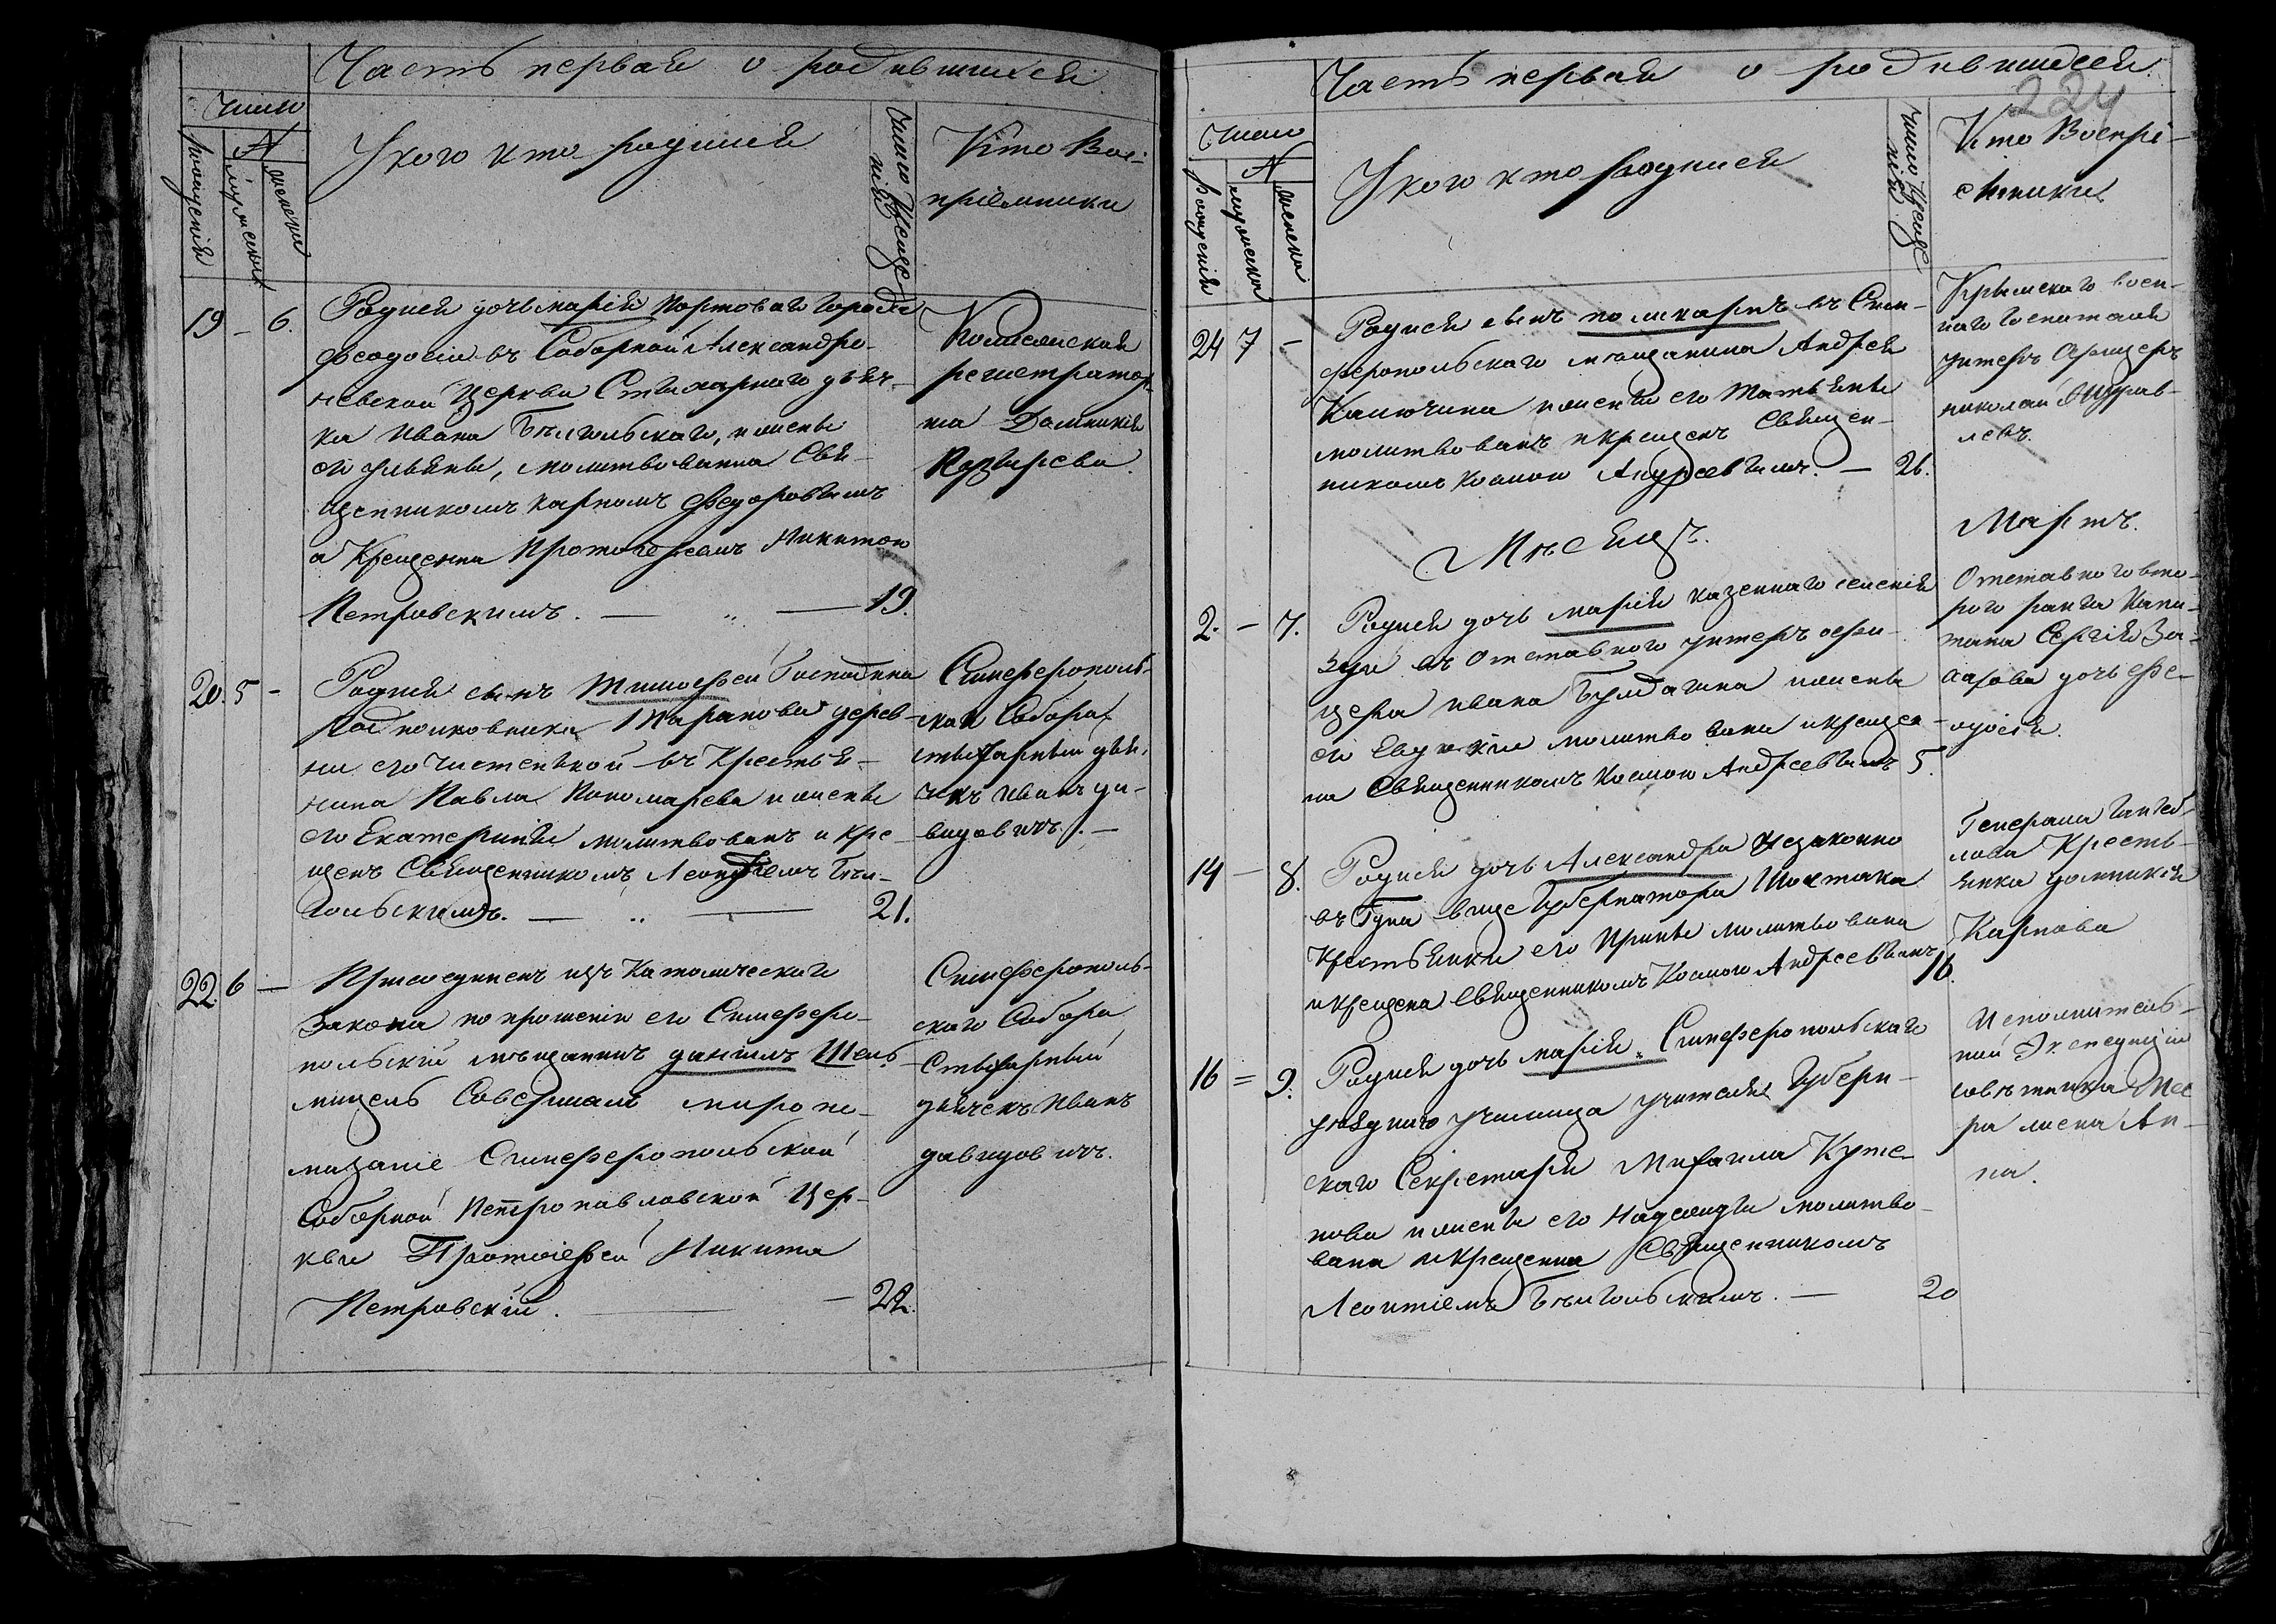 Часть первая о родившихся
Число
рождения
№
мужеска
женска
У кого кто родился
Число крещения
Кто Вос-
пріемники
19 – 6. Родися дочь марія портоваго города
феодосіи въ Соборной Александро-
невской Церкви Стихарного дьяч-
ка Ивана Бѣлгольскаго, и жены
его ульяны, молитвованна Свя-
щенникомъ карпомъ Федоровымъ
а Крещенна Протоіереемъ Никитою
Петровскимъ. — 19.
регистратор-
на Домникія
20. 5 – Родися сынъ Тимофей Господина
Подполковника Таранова дерев-
ни его чистенькой въ Крестья-
нина Павла Пономарева и жены
его Екатерины молитвованъ и кре-
щенъ Священникомъ Леонтіемъ Бѣл-
гольскимъ. — 21.
Симферополь-
скаго Собора
стихарный дья-
чекъ Иванъ да-
видовичъ. —
22. 6 — Присоединенъ изъ Католическаго
Закона по прошенію его Симферо-
польскій мѣщанинъ даніилъ
Совершалъ миропо-
мазаніе Симферопольской
Соборной Петропавловской Цер-
кви Протоіерей Никита
Петровскій. — 22.
Симферополь-
скаго Собора
Стихарный
дьячекъ Иванъ
давидовичъ.
Часть первая о родившихся
224
Число
рождения
№
мужеска
женска
У кого кто родился
Число крещения
Кто Воспрі-
емники
24 7 – Родися сынъ поликарпъ въ Сим-
феропольскаго мещанина Андрея
Калюжина и жены его Татьяны
молитвованъ и крещенъ Священ-
никомъ Космою Андреевымъ. — 26.
Крымскаго воен-
наго госпиталя
унтеръ офицеръ
николай Журав-
левъ.
Мѣсяцъ. Мартъ.
2. – 7. Родися дочь марія казеннаго селенія
Зуи въ отставного унтеръ офи-
цера ивана Булдагина и жены
его Евдокіи молитвована и креще-
на Священникомъ Космою Андреевымъ 5.
Отставного вто-
рого ранга Капи-
тана Сергія За-
харова дочь Фе-
одосія.
14 – 8. Родися дочь Александра Незаконно
въ Гдна вице Губернатора Шостака
Крестьянки его Ирины молитвована
и крещена Священникомъ Космою Андреевымъ 16.
Генерала
Кресть-
янка домникія
Карпова
16 = 9. Родися дочь марія Симферопольскаго
уѣзднаго училища учителя Губерн-
скаго Секретаря Михаила Куже-
нова и жены его Надежды молитво-
вана и Крещенна Священникомъ
Леонтіемъ Бѣлгольскимъ. — 20
Исполнитель-
ной Экспедиціи
совѣтника
жена Ан-
на.